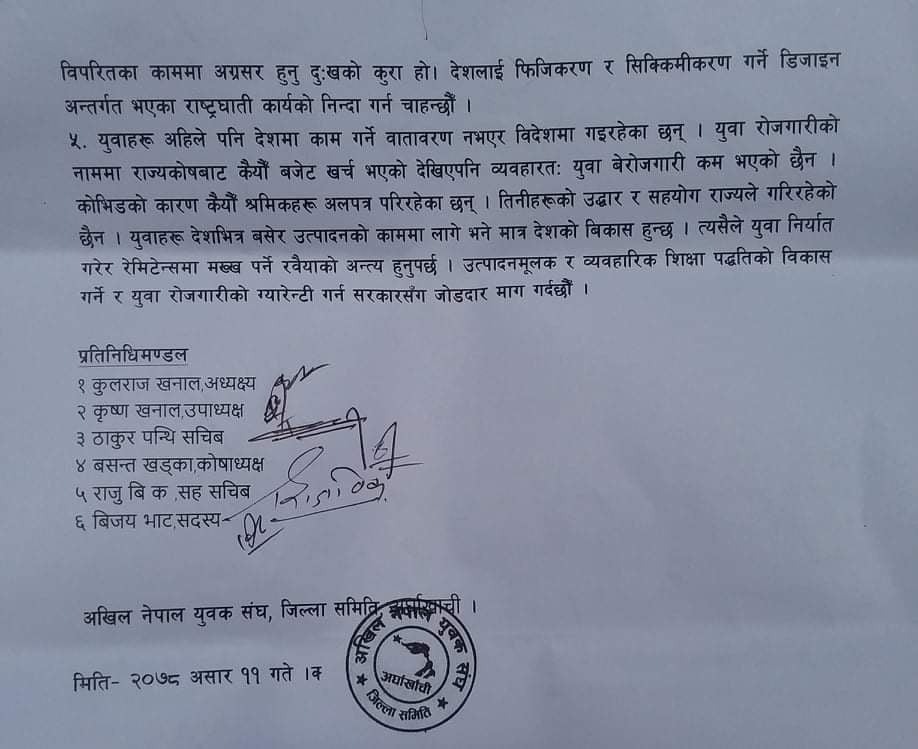 विपरितका काममा अग्रसर हुनु दुःखको कुरा हो। देशलाई फिजिकरण र सिक्किमीकरण गर्ने डिजाइन
अन्तर्गत भएका राष्ट्रघाती कार्यको निन्दा गर्न चाहन्छौँ ।
५. युवाहरू अहिले पनि देशमा काम गर्ने वातावरण नभएर विदेशमा गइरहेका छन् । युवा रोजगारीको
नाममा राज्यकोषबाट कैयौँ बजेट खर्च भएको देखिएपनि व्यवहारत: युवा बेरोजगारी कम भएको छैन ।
कोभिडको कारण कैयौँ श्रमिकहरू अलपत्र परिरहेका छन् । तिनीहरूको उद्धार र सहयोग राज्यले गरिरहेको
छैन । युवाहरू देशभित्र बसेर उत्पादनको काममा लागे भने मात्र देशको बिकास हुन्छ । त्यसैले युवा निर्यात
गरेर रेमिटेन्समा मख्ख पर्ने रवैयाको अन्त्य हुनुपर्छ । उत्पादनमूलक र व्यवहारिक शिक्षा पद्धतिको विकास
गर्ने र युवा रोजगारीको ग्यारेन्टी गर्न सरकारसँग जोडदार माग गर्दछौँ ।
प्रतिनिधिमण्डल
१ कुलराज खनाल,अध्यक्ष्य
२ कृष्ण खनाल,उपाध्यक्ष
३ ठाकुर पन्थि सचिब
४ बसन्त खड्का,कोषाध्यक्ष
५ राजु बि क ,सह सचिब
६ बिजय भाट,सदस्य
अखिल नेपाल युवक संघ, जिल्ला समिति, अर्घाखाची ।
मिति- २०७८ असार ११ गते ।क
अखिल नेपाल युवक संघ
अर्घाखाँची
जिल्ला समिति